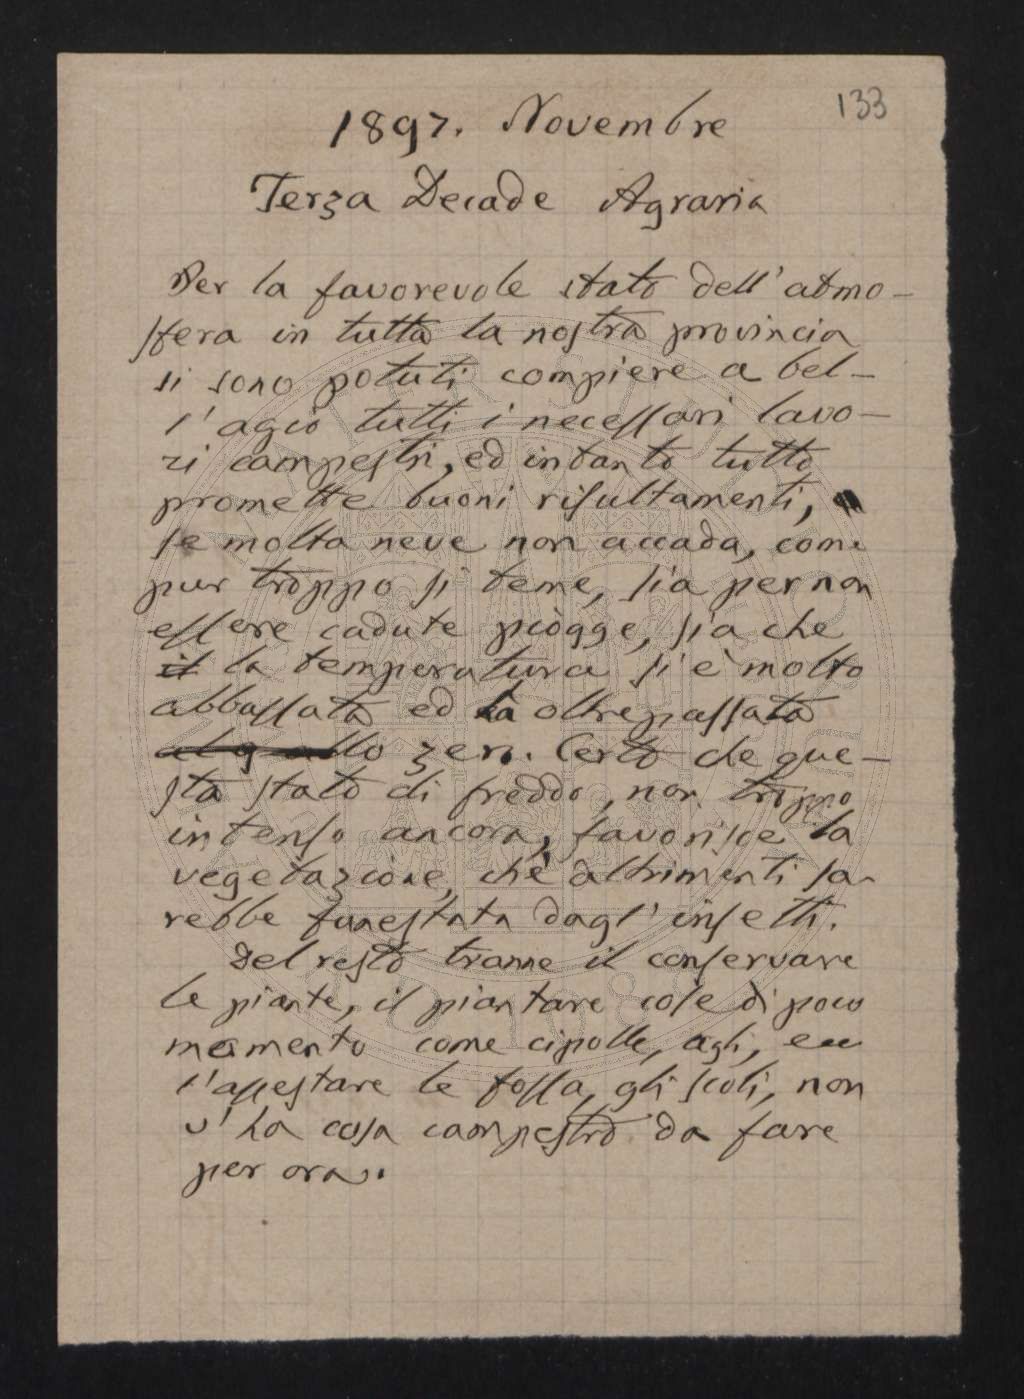 133
1897. Novembre
Terza Decade Agraria
Per la favorevole stato dell'atmo-
sfera in tutta la nostra provincia
si sono potuti compiere a bel-
l'agio tutti i necessari lavo-
ri campestri, ed intanto tutto
promette buoni risultamenti,
se molta neve non accada, come
pur troppo si teme, sia per non
essere cadute piogge, sia che
il la temperatura si è molto
abbassata ed ha oltrepassata
lo zero. Certo che que-
sto stato di freddo, non troppo
intenso ancora, favorisce la
vegetazione, chè altrimenti sa-
rebbe funestata dagl'insetti.
Del resto tranne il conservare
le piante, il piantare cose di poco
momento come cipolle, agli, e
l'assestare le fossa, gli scoli, non
v'ha cosa campestre da fare
per ora.